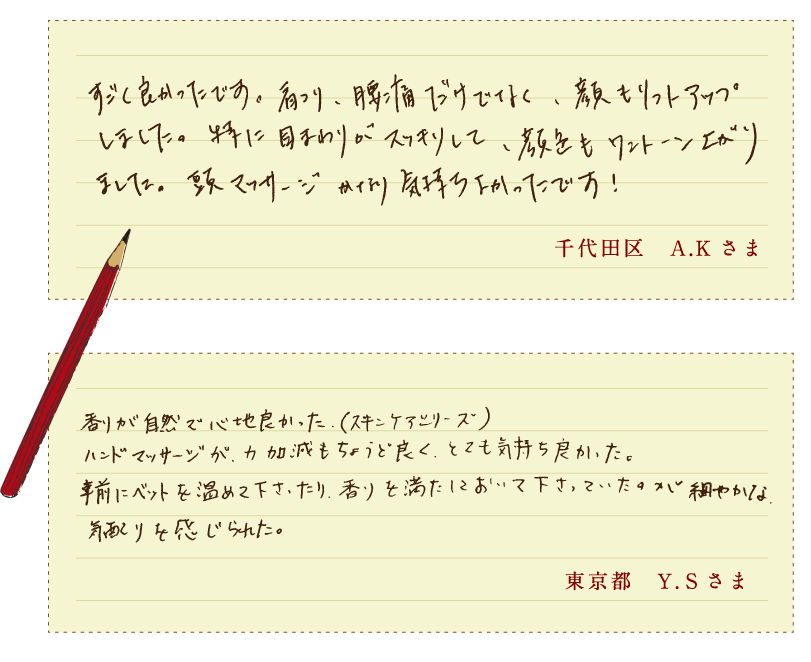 すごく良かったです。肩コリ、腰痛だけでなく、顔もリフトアップ
しました。特に目まわりがスッキリして、顔色もワントーン上がり
ました。頭マッサージかなり気持ちよかったです!
千代田区 A.Kさま
香りが自然で心地良かった.(スキンケアシリーズ)
ハンドマッサージが、力加減もちょうど良く、とても気持ち良かった。
事前にベットを温めて下さったり、香りを満たしておいて下さっていたのが細やかな
気配りを感じられた。
東京都 Y.Sさま